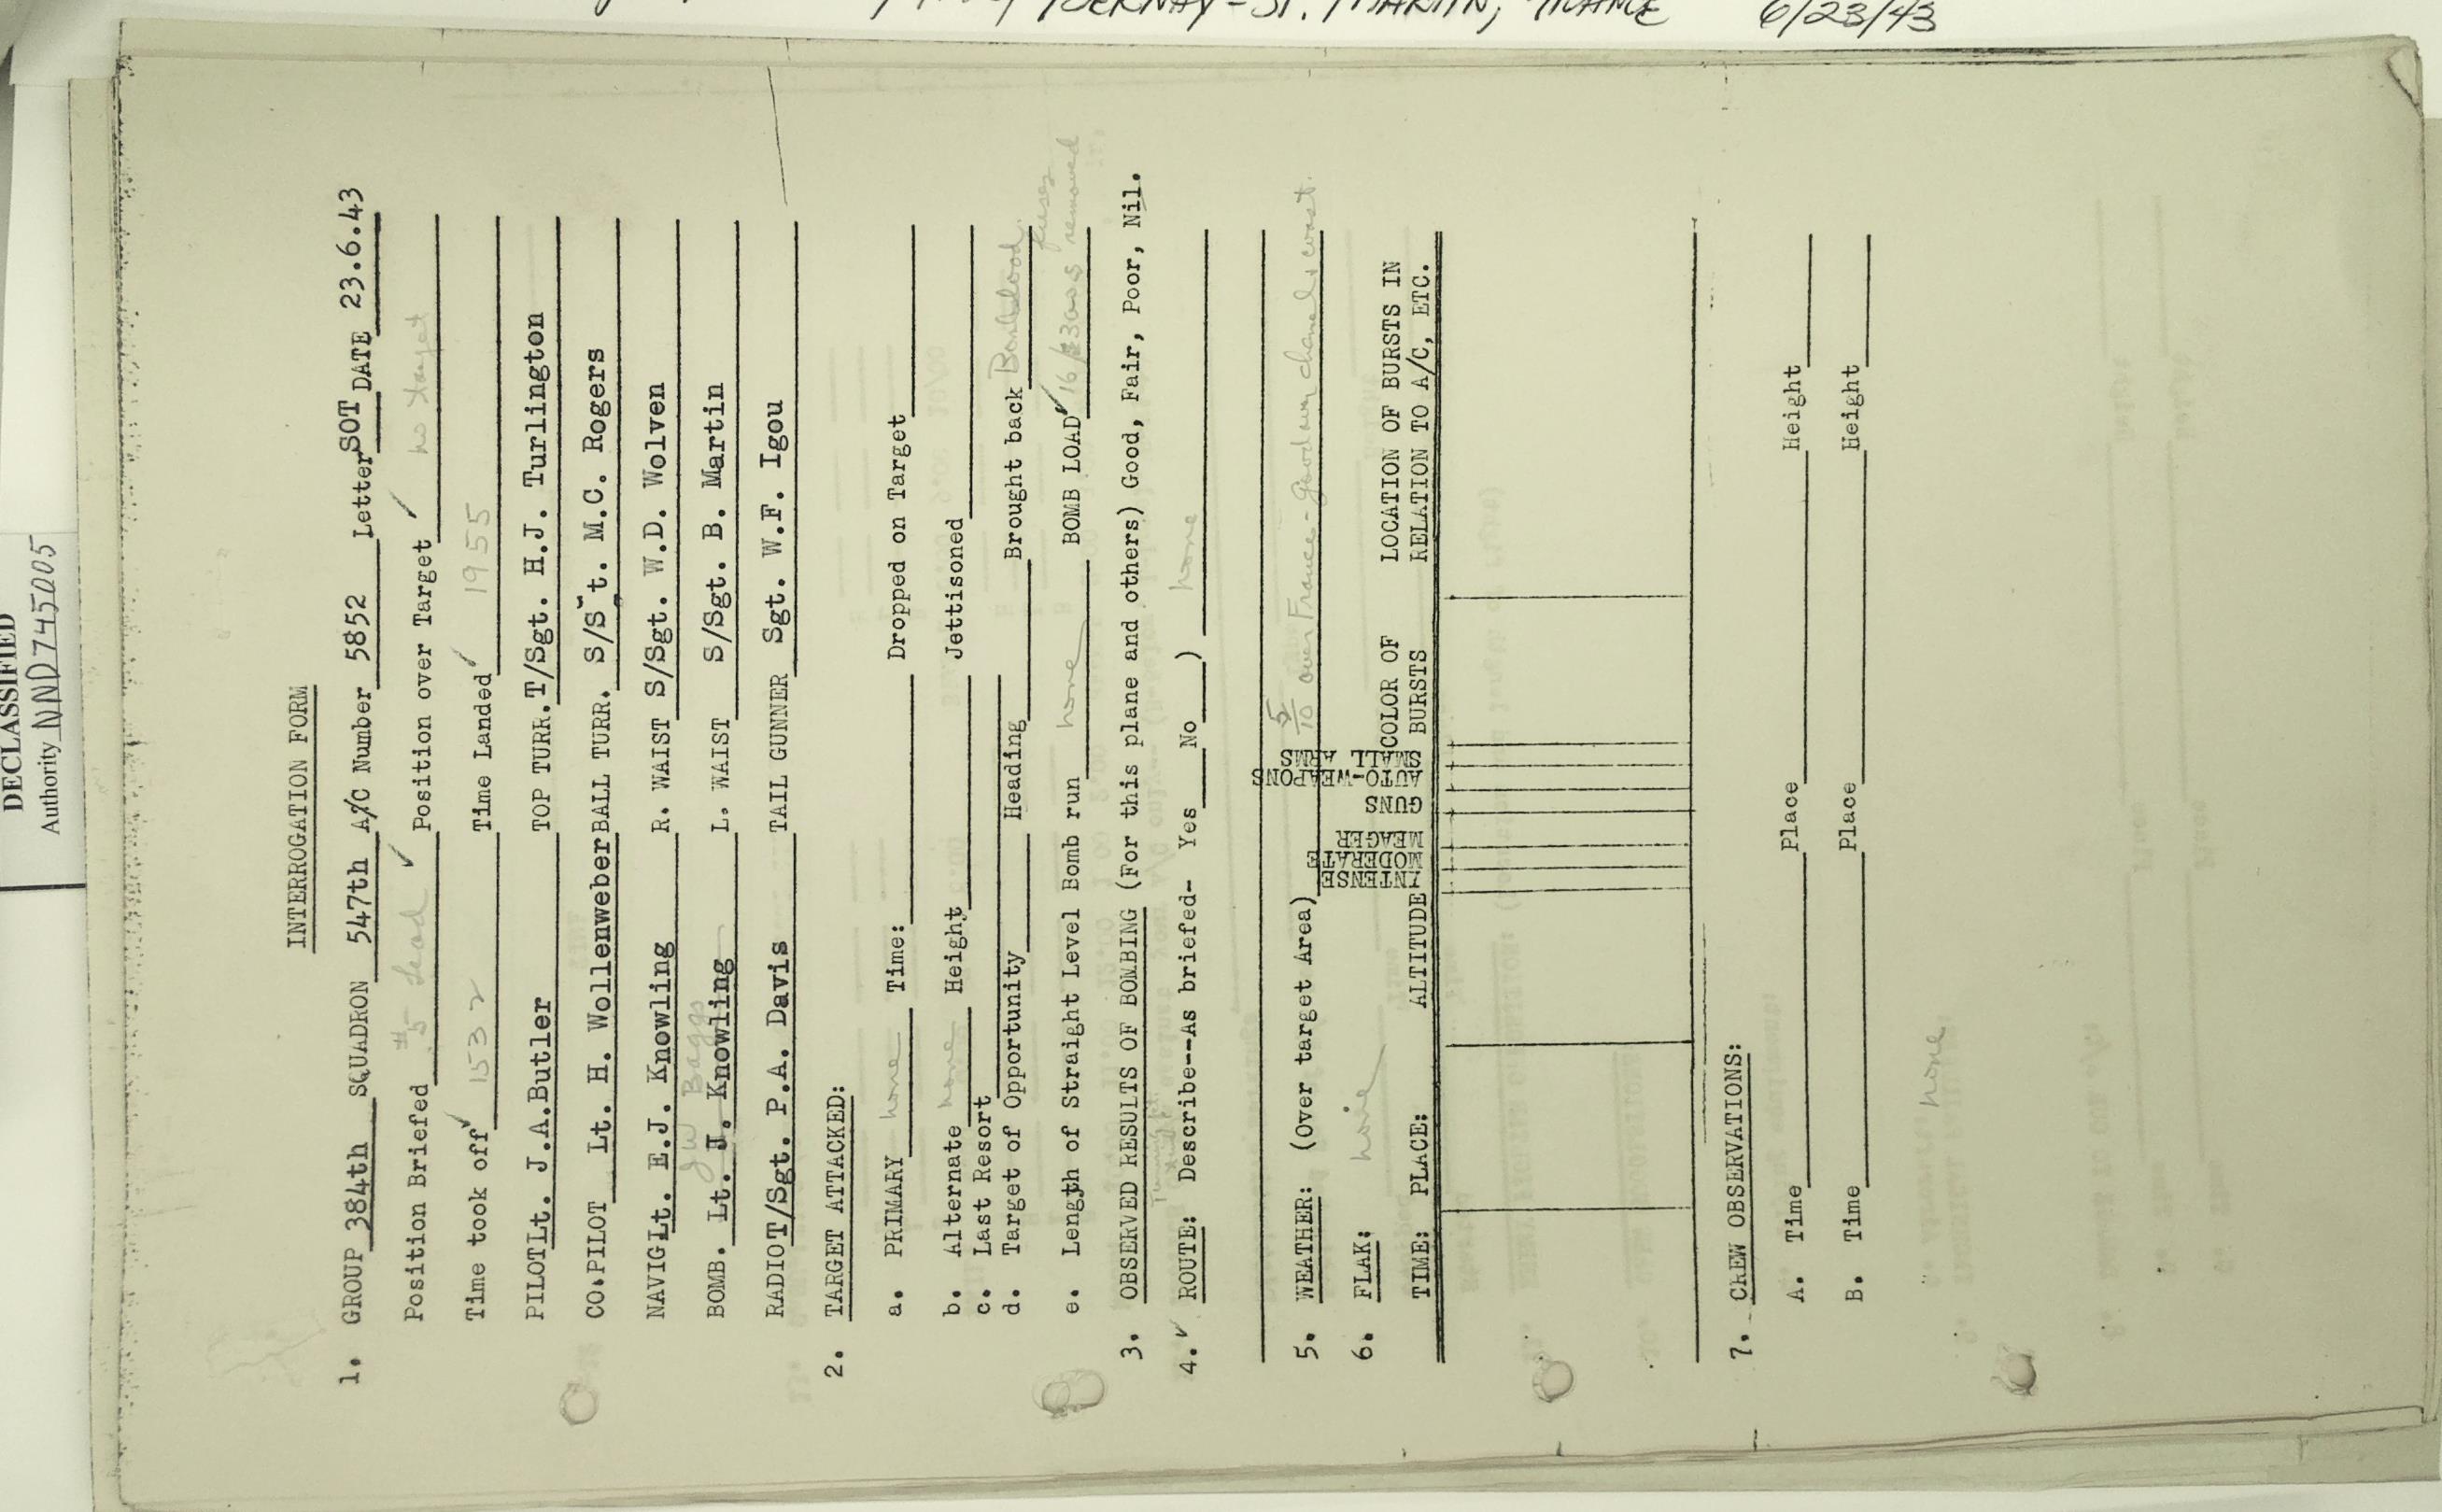 BERNAY-ST. MARTIN, FRANCE 6/23/43
DECLASSIFIED
Authority NND 745005
INTERROGATION FORM
1. GROUP 384th SQUADRON 547th A/C Number 5852 Letter SOT DATE 23.6.43
Position Briefed #5 Lead Position over Target no target
Time took off 1532 Time Landed 1955
PILOT Lt. J.A.Butler TOP TURR. T/Sgt. H.J. Turlington
CO.PILOT Lt. H. Wollenweber BALL TURR. S/S t. M.C. Rogers
NAVIG Lt. E.J. Knowling R. WAIST S/Sgt. W.D. Wolven
JW Baggs
BOMB. Lt. J. Knowling L. WAIST S/Sgt. B. Martin
RADIO T/Sgt. P.A. Davis TAIL GUNNER Sgt. W.F. Igou
2. TARGET ATTACKED:
a. PRIMARY none Time: Dropped on Target
b. Alternate none Height Jettisoned
c. Last Resort
d. Target of Opportunity Heading Brought back Bombload
fuses
e. Length of Straight Level Bomb run none BOMB LOAD 16/ removed
3. OBSERVED RESULTS OF BOMBING (For this plane and others) Good, Fair, Poor, Nil.
4. ROUTE: Describe--As briefed- Yes No ) none
5. WEATHER: (Over target Area) 5/10 over France - good over channel & coast.
6. FLAK: none
TIME: PLACE: ALTITUDE INTENSE MODERATE MEAGER GUNS AUTO-WEAPONS SMALL ARMS COLOR OF BURSTS LOCATION OF BURSTS IN RELATION TO A/C, ETC.
7. CREW OBSERVATIONS:
A. Time Place Height
B. Time Place Height
none